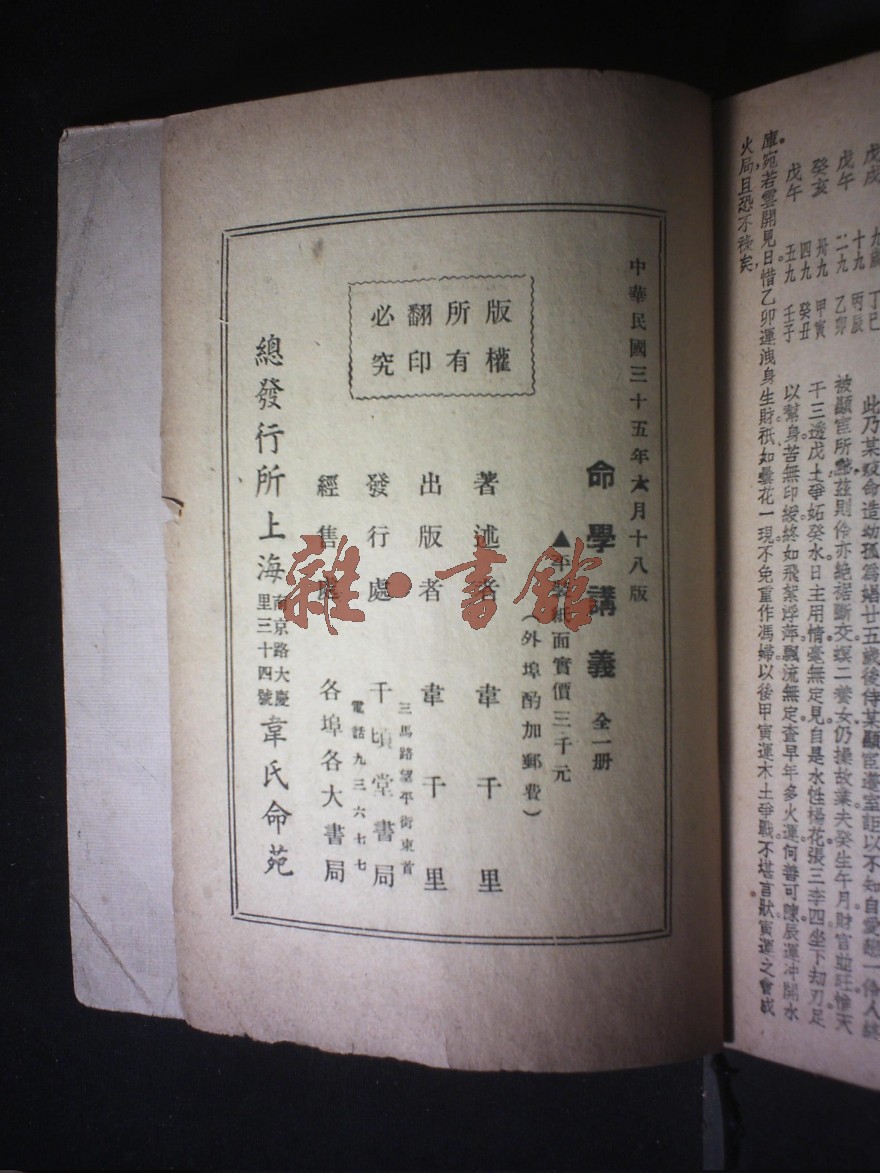 戊戌 九歲 丁巳
戊午 十九 丙辰
癸亥 二九 乙卯
戊午 卅九 甲寅
四九 癸丑
五九 壬子
此乃某妓命造幼孤爲娼廿五歲後侍某顯臣簉室詎以不知自愛戀一伶人終
被顯宦所黜茲則伶亦絕裾斷交螟二養女仍操故業夫癸生午月財官並旺惟天
干三透戊土爭妬癸水日主用情毫無定見自是水性楊花張三李四坐下刦刃足
以幫身苦無印綬終如飛絮浮萍飄流無定查早年多火運何善可陳辰運冲開水
庫宛若雲開見日惜乙卯運洩身生財祇如曇花一現不免重作馮婦以後甲寅運木土爭戰不堪言狀寅運之會成
火局且恐不祿矣
中華民國三十五年六月十八版
命學講義 全一册
▲平裝紙面實價三千元
（外埠酌加郵費）
著述者 韋千里
出版者 韋千里
發行處 千頃堂書局
三馬路望平街東首
電話九三六七七
經售處 各埠各大書局
版權
所有
翻印
必究
總發行所上海南京路大慶里三十四號韋氏命苑
雜·書館